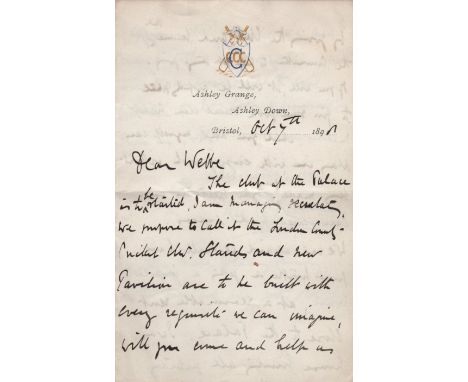 Ashley Grange,
Ashley Down,
Bristol, Oct 7th 1898
Dear Webbe
The club at the Palace
is to be started, I am managing secretary,
we propose to call it the London County
Cricket Club, Stands and new
Pavilion are to be built with
every requisite we can imagine,
will you come and help us